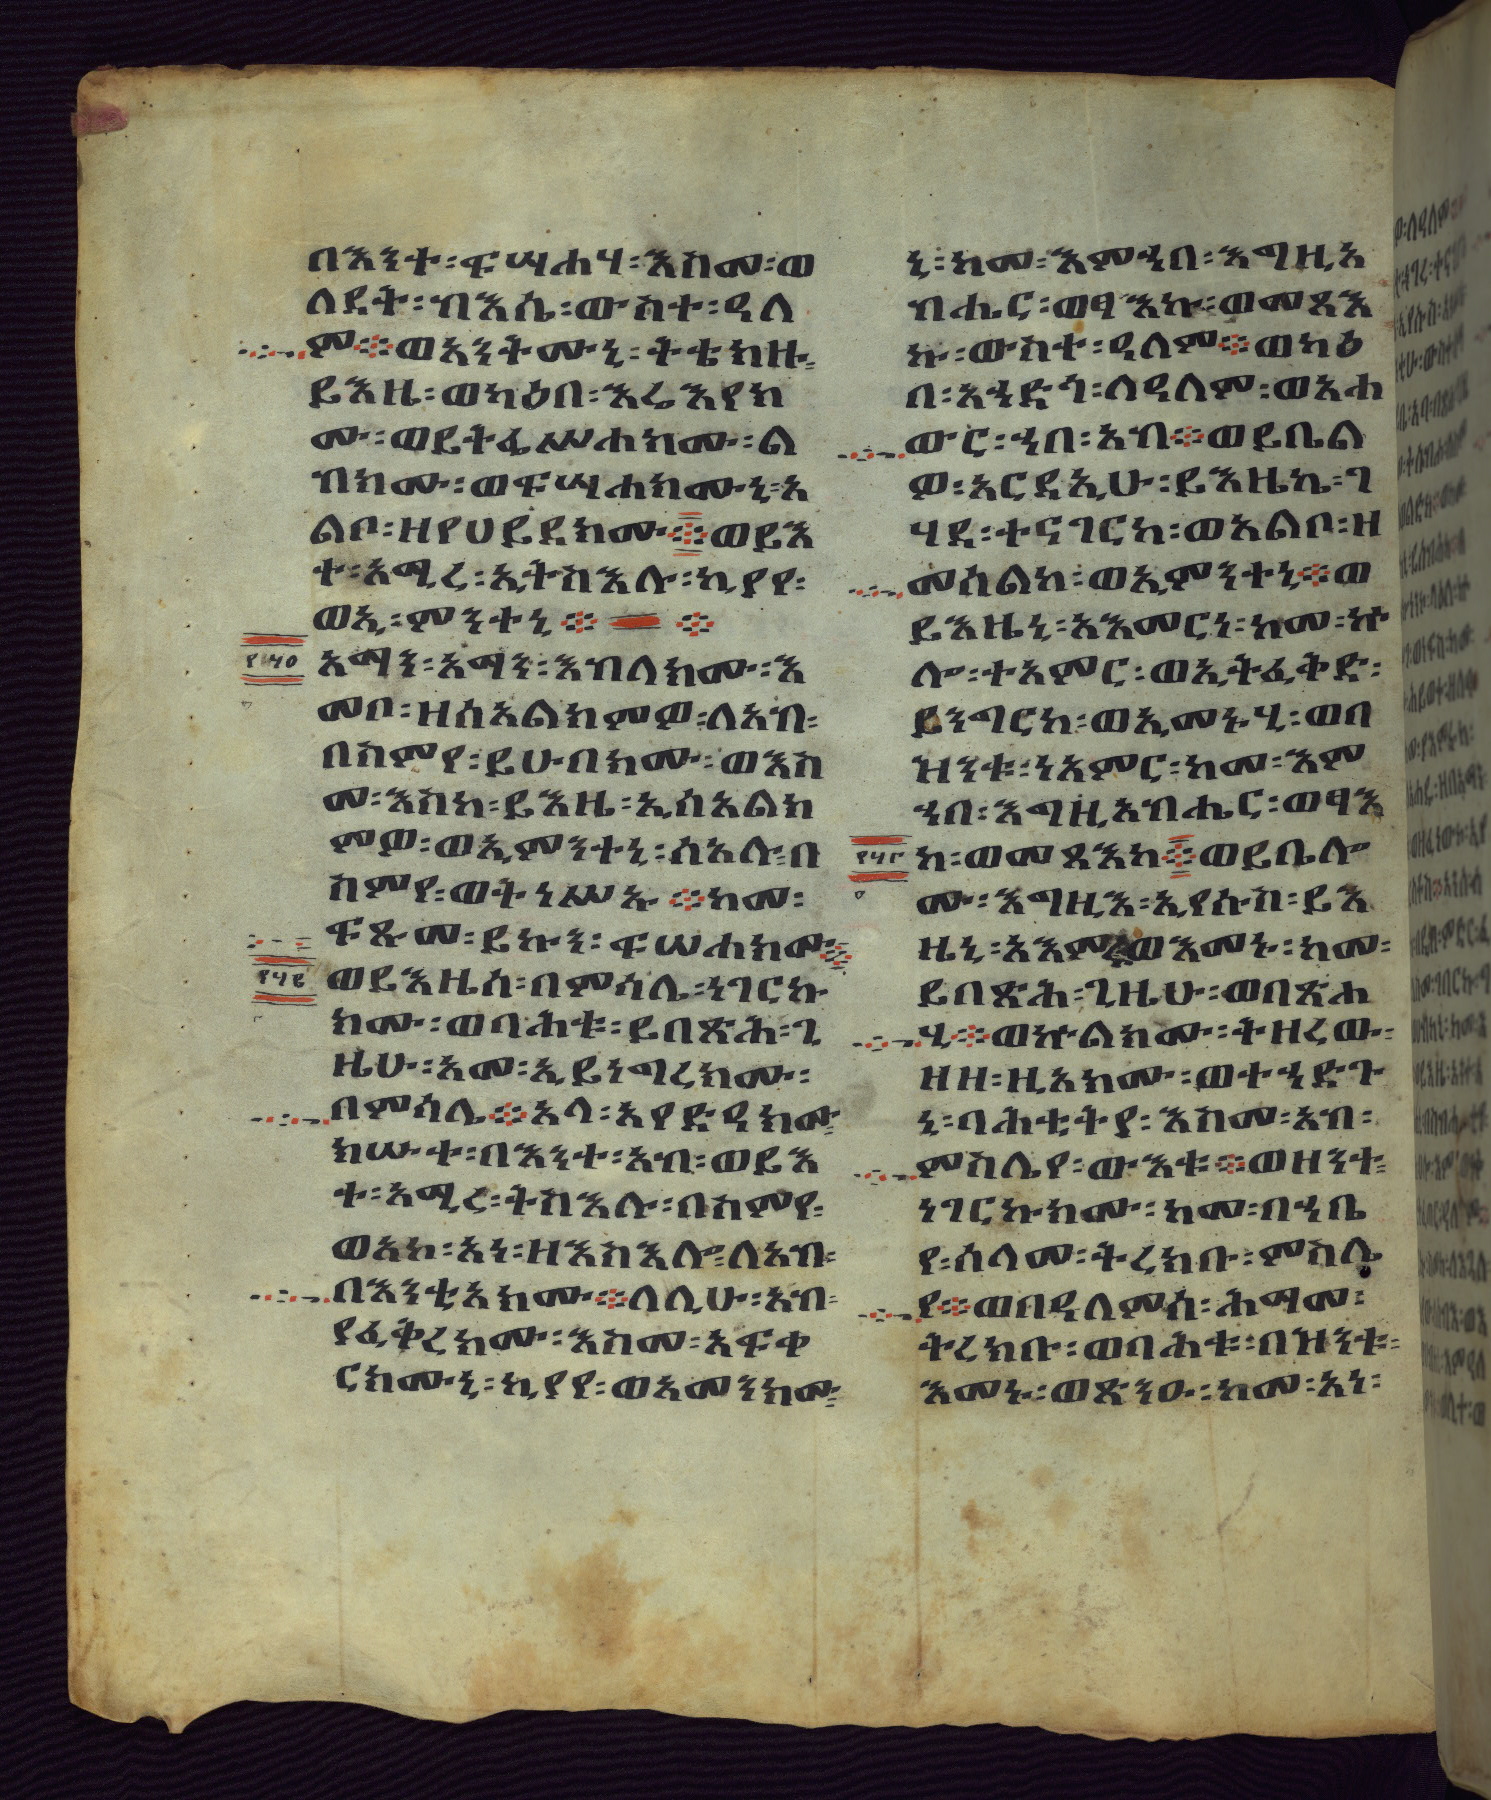 በእንተ፡ፍሣሐሃ፡እስመ፡ወ
ለደት፡ብእሴ፡ውስተ፡ዓለ
ም፨ወአንትሙኒ፡ትቴክዙ፡
ይእዜ፡ወካዕበ፡እሬእየክ
ሙ፡ወይትፌሣሕክሙ፡ል
ብክሙ፡ወፍሣሐክሙኒ፡አ
ልቦ፡ዘየሀይደክሙ፨ወይእ
ተ፡አሚረ፡ኢትስእሉ፡ኪያየ፡
ወኢ፡ምንተኒ፨ ፨
አማን፡አማን፡እብለክሙ፡እ
መቦ፡ዘሰአልክምዎ፡ለአብ፡
በስምየ፡ይሁበክሙ፡ወእስ
መ፡እስከ፡ይእዜ፡ኢሰአልክ
ምዎ፡ወኢምንተኒ፡ሰአሉ፡በ
ስምየ፡ወትነሥኡ፨ከመ፡
ፍጹመ፡ይኩን፡ፍሠሐክሙ፨
ወይእዜሰ፡በምሳሌ፡ነገርኩ
ክሙ፡ወባሕቱ፡ይበጽሕ፡ጊ
ዜሁ፡አመ፡ኢይነግረክሙ፡
በምሳሌ፨አላ፡አየድዓክሙ፡
ክሡተ፡በእንተ፡አብ፡ወይእ
ተ፡አሚረ፡ትስእሉ፡በስምየ፡
ወአኮ፡አነ፡ዘእስእሎ፡ለአብ፡
በእንቲአክሙ፨ለሊሁ፡አብ፡
ያፈቅረክሙ፡እስመ፡አፍቀ
ርክሙኒ፡ኪያየ፡ወአመንክሙ፡
ኒ፡ከመ፡እምኀበ፡እግዚአ
ብሔር፡ወፃእኩ፡ወመጻእ
ኩ፡ውስተ፡ዓለም፨ወካዕ
በ፡አኀድጎ፡ለዓለም፡ወአሐ
ውር፡ኀበ፡አብ፨ወይቤል
ዎ፡አርዳኢሁ፡ይእዜኬ፡ገ
ሃደ፡ተናገርከ፡ወአልቦ፡ዘ
መሰልከ፡ወኢምንተኒ፨ወ
ይእዜኒ፡አእመርነ፡ከመ፡ኵ
ሎ፡ተአምር፡ወኢትፈቅድ፡
ይንግርከ፡ወኢመኑሂ፡ወበ
ዝንቱ፡ነአምር፡ከመ፡እም
ኀበ፡እግዚአብሔር፡ወፃእ
ከ፡ወመጻእከ፨ወይቤሎ
ሙ፡እግዚእ፡ኢየሱስ፡ይእ
ዜኒ፡አእምሩ፡ወእመኑ፡ከመ፡
ይበጽሕ፡ጊዜሁ፡ወበጽሐ
ሂ፨ወኵልክሙ፡ትዘረው፡
ዘዘ፡ዚአክሙ፡ወተኀድጉ
ኒ፡ባሕቲትየ፡እስመ፡አብ፡
ምስሌየ፡ውእቱ፨ወዘንተ፡
ነገርኩክሙ፡ከመ፡በኀቤ
የ፡ሰላመ፡ትረክቡ፡ምስሌ
የ፨ወበዓለምሰ፡ሕማመ፡
ትረክቡ፡ወባሕቱ፡በዝንቱ፡
እመኑ፡ወጽንዑ፡ከመ፡አነ፡